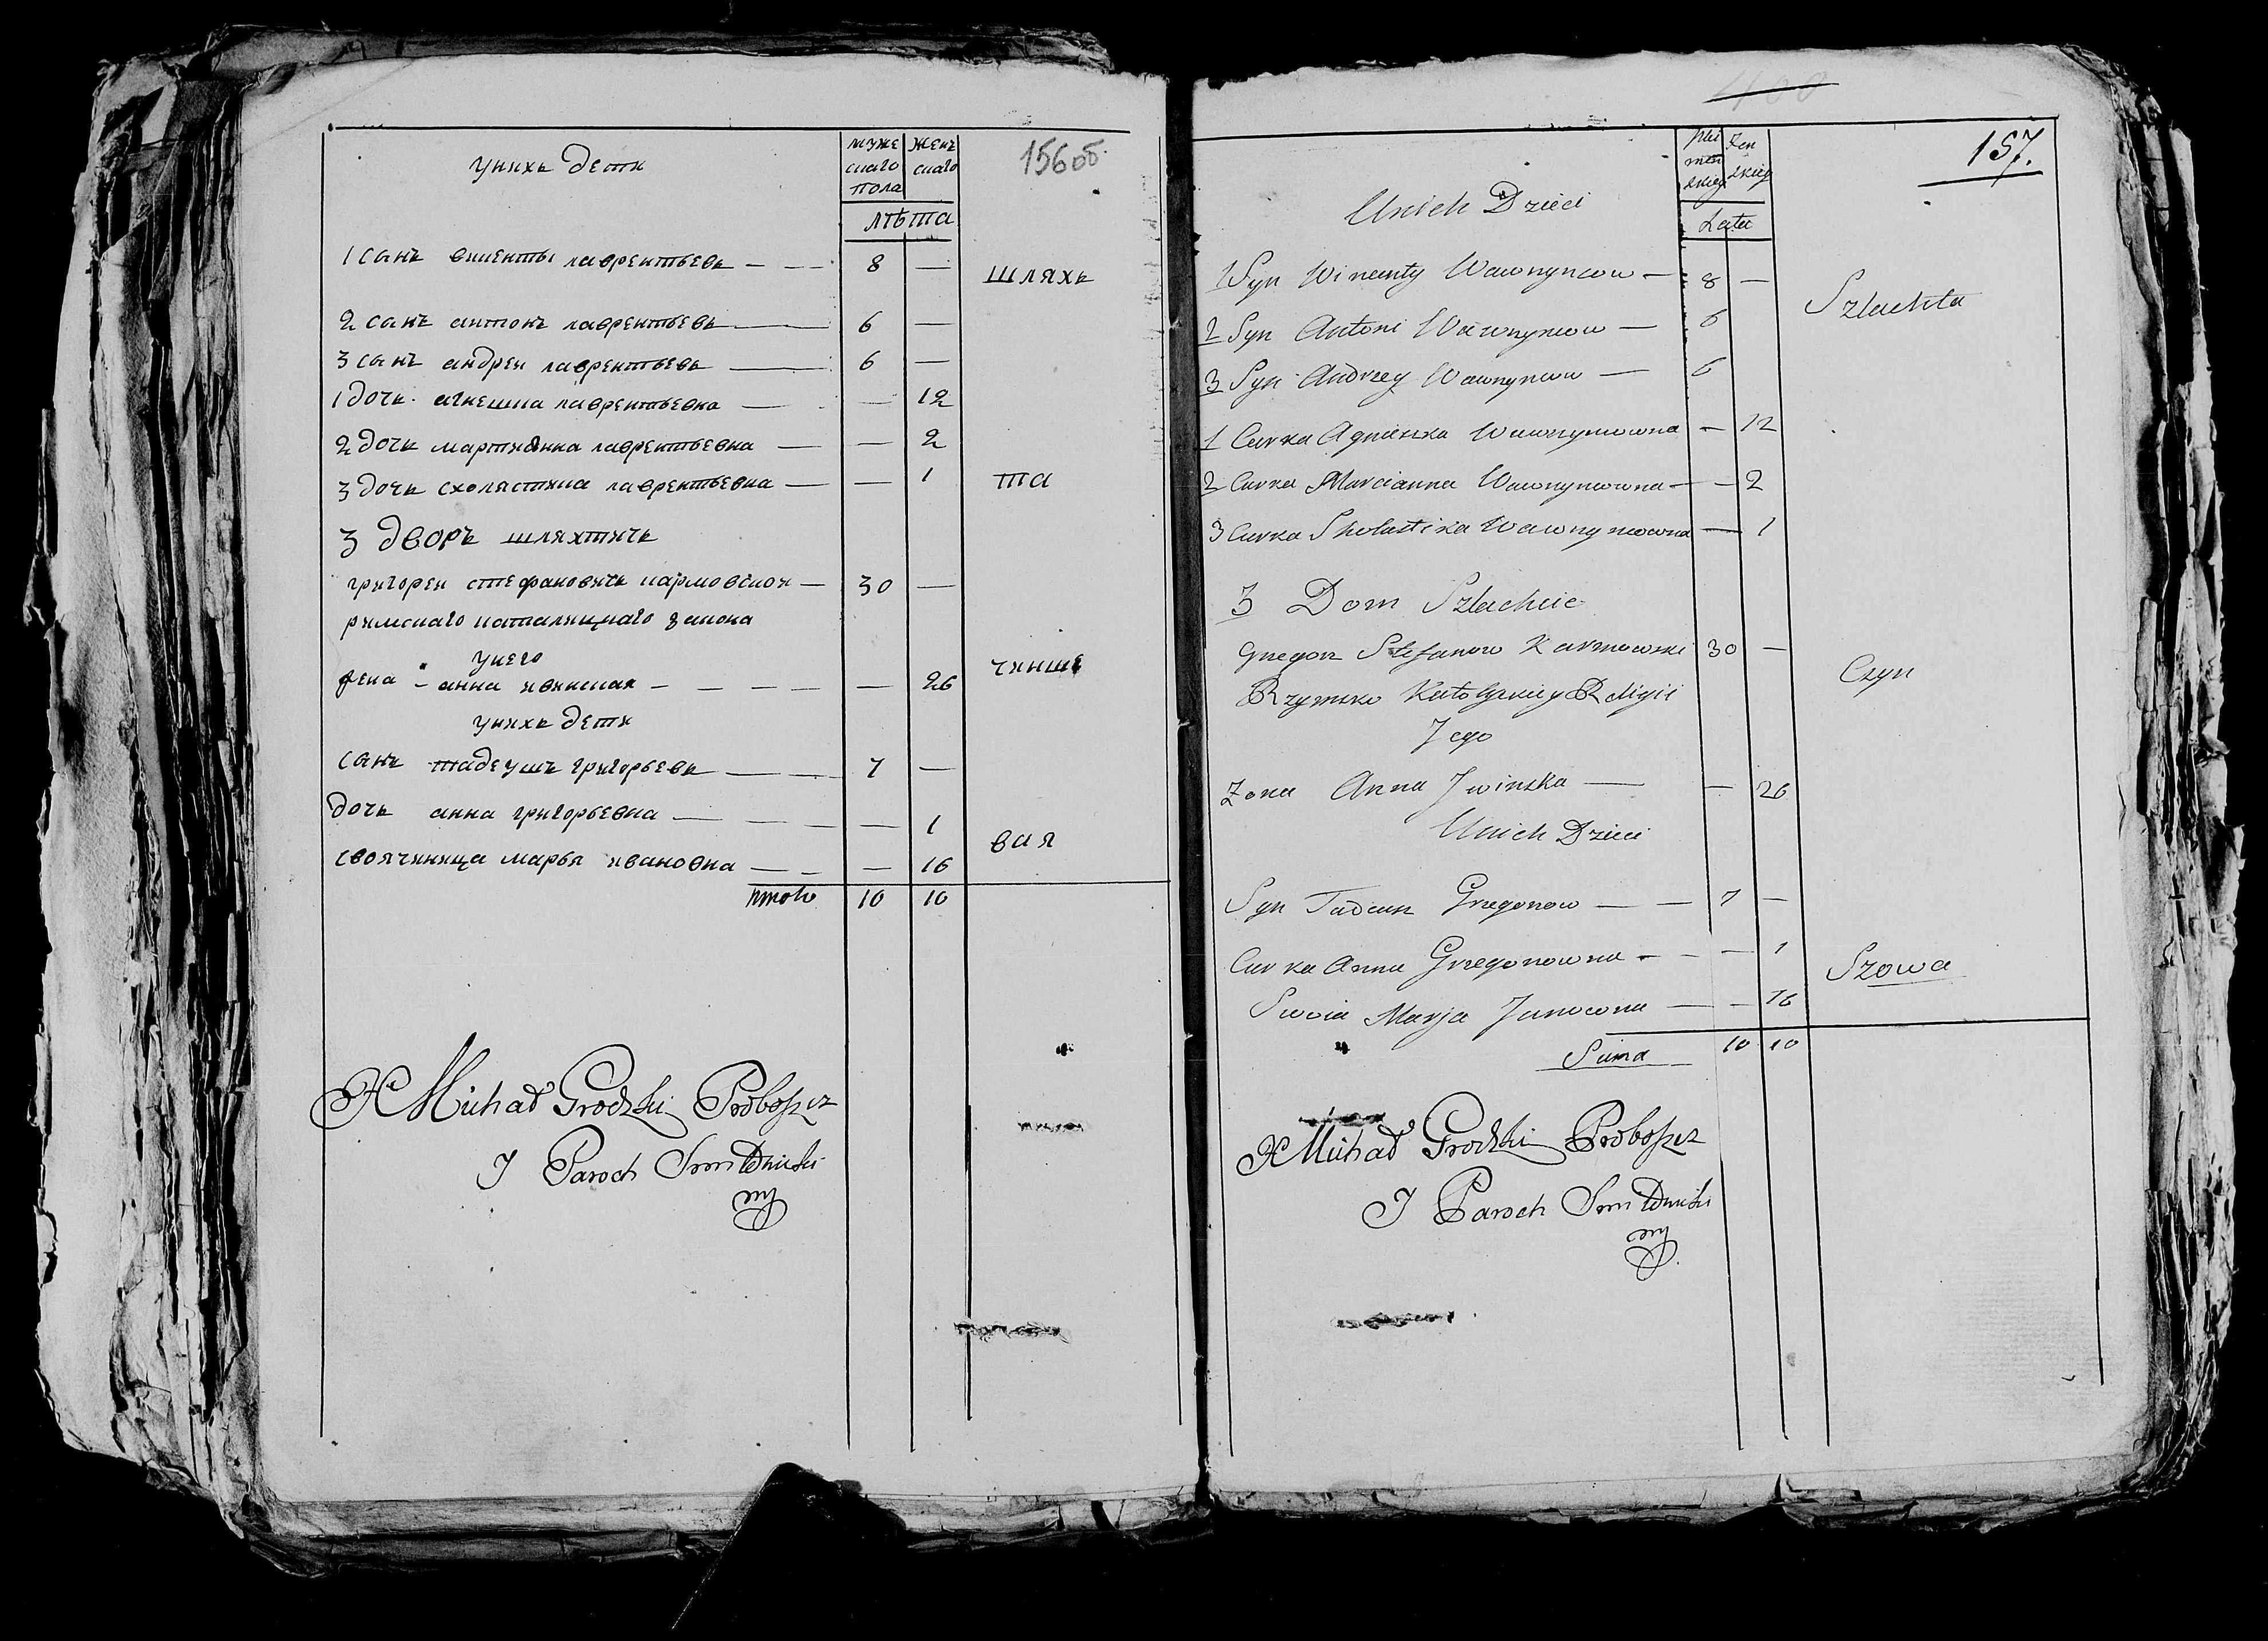 156об.
унихь дети
муже
скаго
пола
женъ
скаго
лѣта
1 санъ винценты лаврентьевь — 8 —
шляхь
2 санъ антонъ лаврентьевь — 6 —
3 санъ андреи лаврентьевь — 6 —
1 дочь агнешка лаврентьевна — — 12
2 дочь мартиянна лаврентьевна — — 2
3 дочь схолястика лаврентьевна — — 1
та
3 дворъ шляхтичь
григореи стефановичь кармовскои — 30 —
римскаго католицкаго закона
унего
чинше
жена — анна ивинская — — 26
унихь дети
санъ тадеушъ григорьевь — 7 —
дочь анна григорьевна — — 1
вая
своячиница марья ивановна — — 16
итого 10 10
X Michał Grodzki Proboszcz
J Paroch Smołdwicki
mp
400
157.
Unich Dzieci
Zen
skieg
Lata
1 Syn Wincenty Wawrzyncow — 8 —
Szlachta
2 Syn Antoni Wawrzyncow — 6
3 Syn Andrzey Wawrzyncow — 6
1 Curka Agnieszka Wawrzyncowna — 12
2 Curka Marcianna Wawrzyncowna — — 2
3 Curka Skolastika Wawrzyncowna — 1
3 Dom Szlachcic
Grzegorz Stefanow Karmowski 30 —
Czyn
Rzymsko Katolyckiey Religii
Jego
Zona Anna Jwinska — — 26
Unich Dzieci
Syn Tadeusz Grzegorzow — — 7 —
Curka Anna Grzegorzowna — — 1
Szowa
Swoia Marja Janowna — — 16
Suma 10 10
X Michał Grodzki Proboszcz
J Paroch Smołdwicki
mp